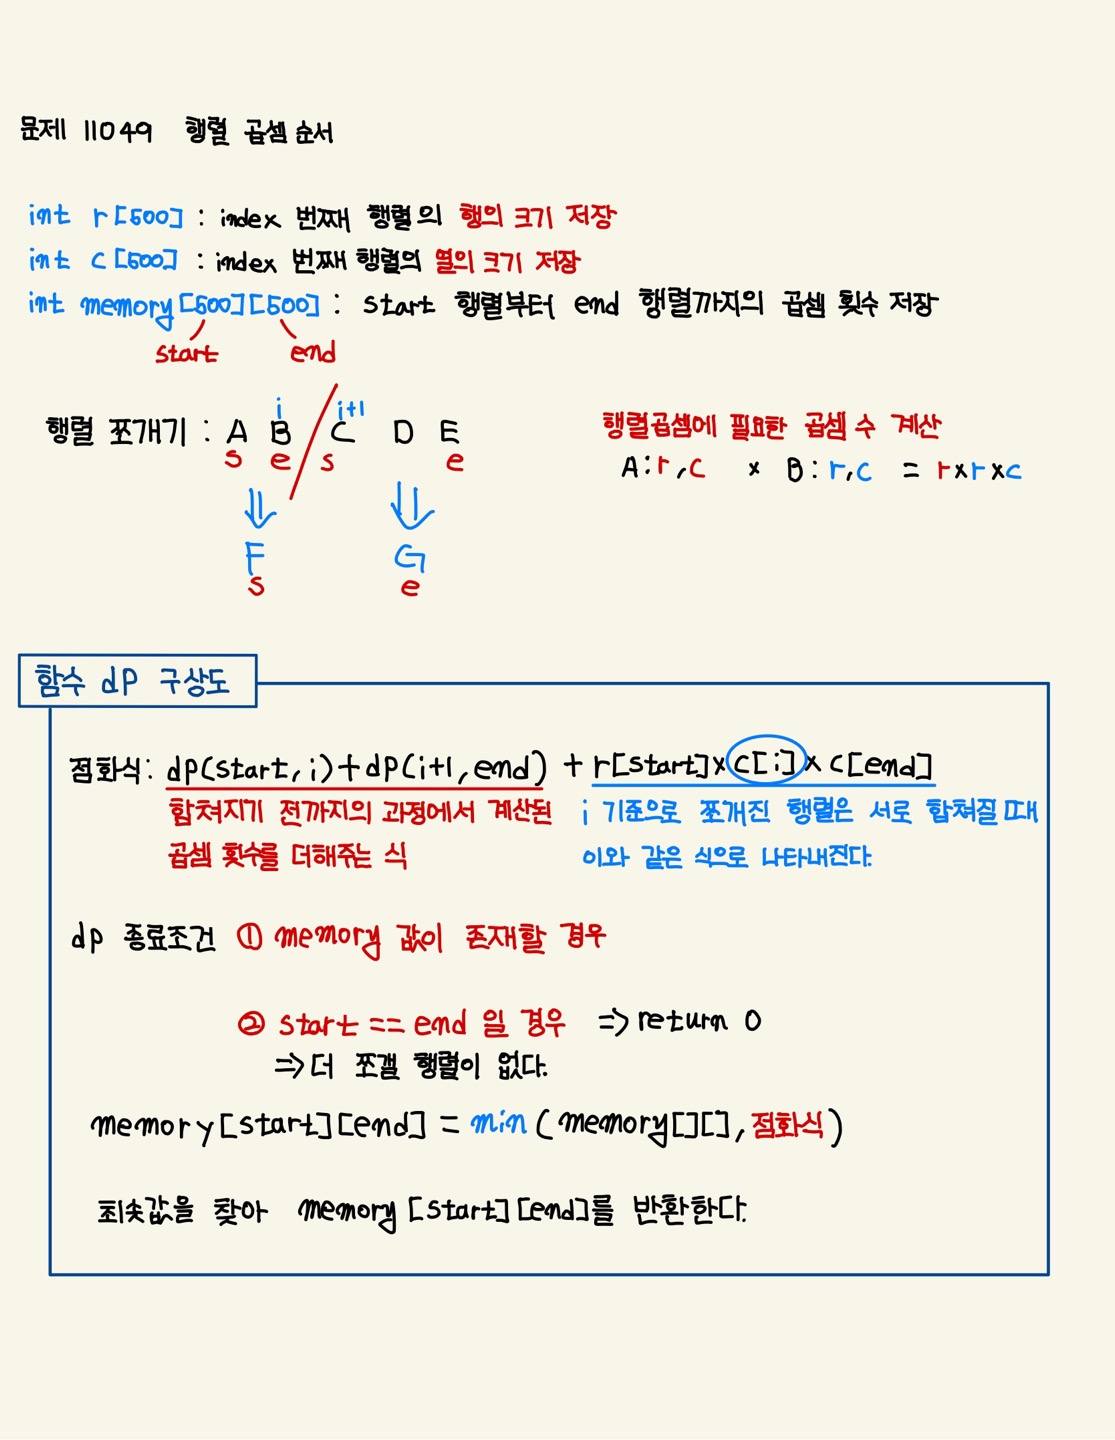 문제 11049 행렬 곱셈 순서
int r[500] : index 번째 행렬의 행의 크기 저장
int c[500] : index 번째 행렬의 열의 크기 저장
int memory[500][500] : start 행렬부터 end 행렬까지의 곱셈 횟수 저장
start end
i i+1
행렬 쪼개기 : A B / C D E
s e s e
행렬곱셈에 필요한 곱셈 수 계산
A:r,c × B:r,c = r×r×c
F G
s e
함수 dp 구상도
점화식: dp(start,i)+dp(i+1,end) + r[start]×c[i]×c[end]
합쳐지기 전까지의 과정에서 계산된
곱셈 횟수를 더해주는 식
i 기준으로 쪼개진 행렬은 서로 합쳐질 때
이와 같은 식으로 나타내진다.
dp 종료조건 ① memory 값이 존재할 경우
② start == end 일 경우 => return 0
=> 더 쪼갤 행렬이 없다.
memory[start][end] = min(memory[][], 점화식)
최솟값을 찾아 memory[start][end]를 반환한다.